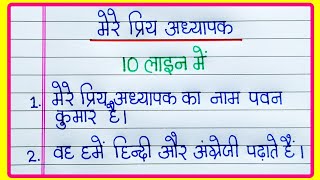 मेरे प्रिय अध्यापक
10 लाइन में
1. मेरे प्रिय अध्यापक का नाम पवन
कुमार है।
2. वह हमें हिन्दी और अंग्रेजी पढ़ाते हैं।